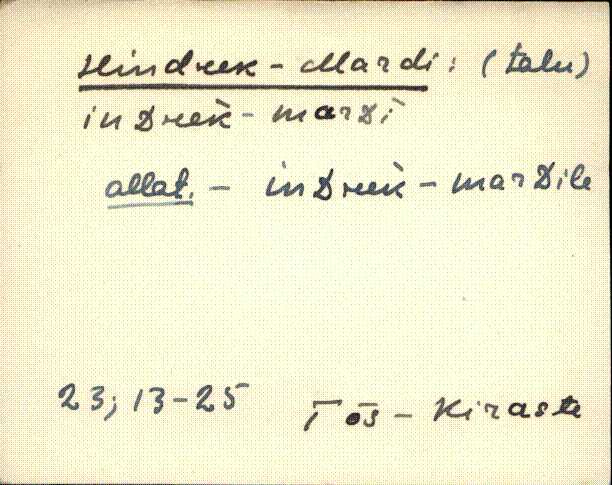 Hindreek - Mardi: (talu)
inDreek̀ - marDi
allat. - inDreek̀ - marDile
23; 13-25 Tõs - Kiraste